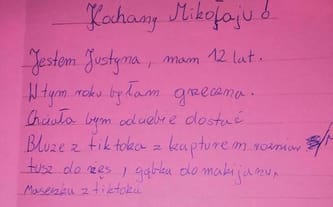 Kochany Mikołaju
Jestem Justyna, mam 12 lat.
W tym roku byłam grzeczna.
Chciała bym od ciebie dostać
Bluze z tiktoka z kapturem rozmiar S/M
tusz do rzęs, gąbka do makijarzu,
Maseczka z tiktoka